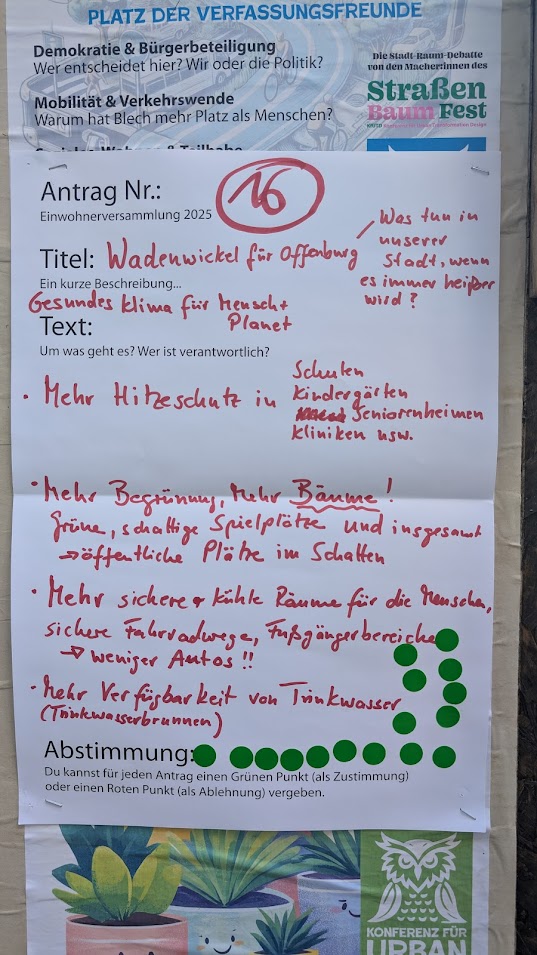 PLATZ DER VERFASSUNGSFREUNDE
Demokratie & Bürgerbeteiligung
Wer entscheidet hier? Wir oder die Politik?
Mobilität & Verkehrswende
Warum hat Blech mehr Platz als Menschen?
Die Stadt-Raum-Debatte
von den Macher:innen des
Straßen
Baum Fest
Antrag Nr.: 16
Einwohnerversammlung 2025
Titel: Wadenwickel für Offenburg
Was tun in
unserer
Stadt, wenn
es immer heißer
wird?
Ein kurze Beschreibung...
Gesundes Klima für Mensch +
Planet
Text:
Um was geht es? Wer ist verantwortlich?
• Mehr Hitzeschutz in
Schulen
Kindergärten
Seniorenheimen
Kliniken usw.
• Mehr Begrünung, Mehr Bäume!
Grüne, schattige Spielplätze und insgesamt
→ öffentliche Plätze im Schatten
• Mehr sichere + kühle Räume für die Menschen,
sichere Fahrradwege, Fußgängerbereiche
→ weniger Autos!!
• Mehr Verfügbarkeit von Trinkwasser
(Trinkwasserbrunnen)
Abstimmung:
Du kannst für jeden Antrag einen Grünen Punkt (als Zustimmung)
oder einen Roten Punkt (als Ablehnung) vergeben.
KONFERENZ FÜR
URBAN